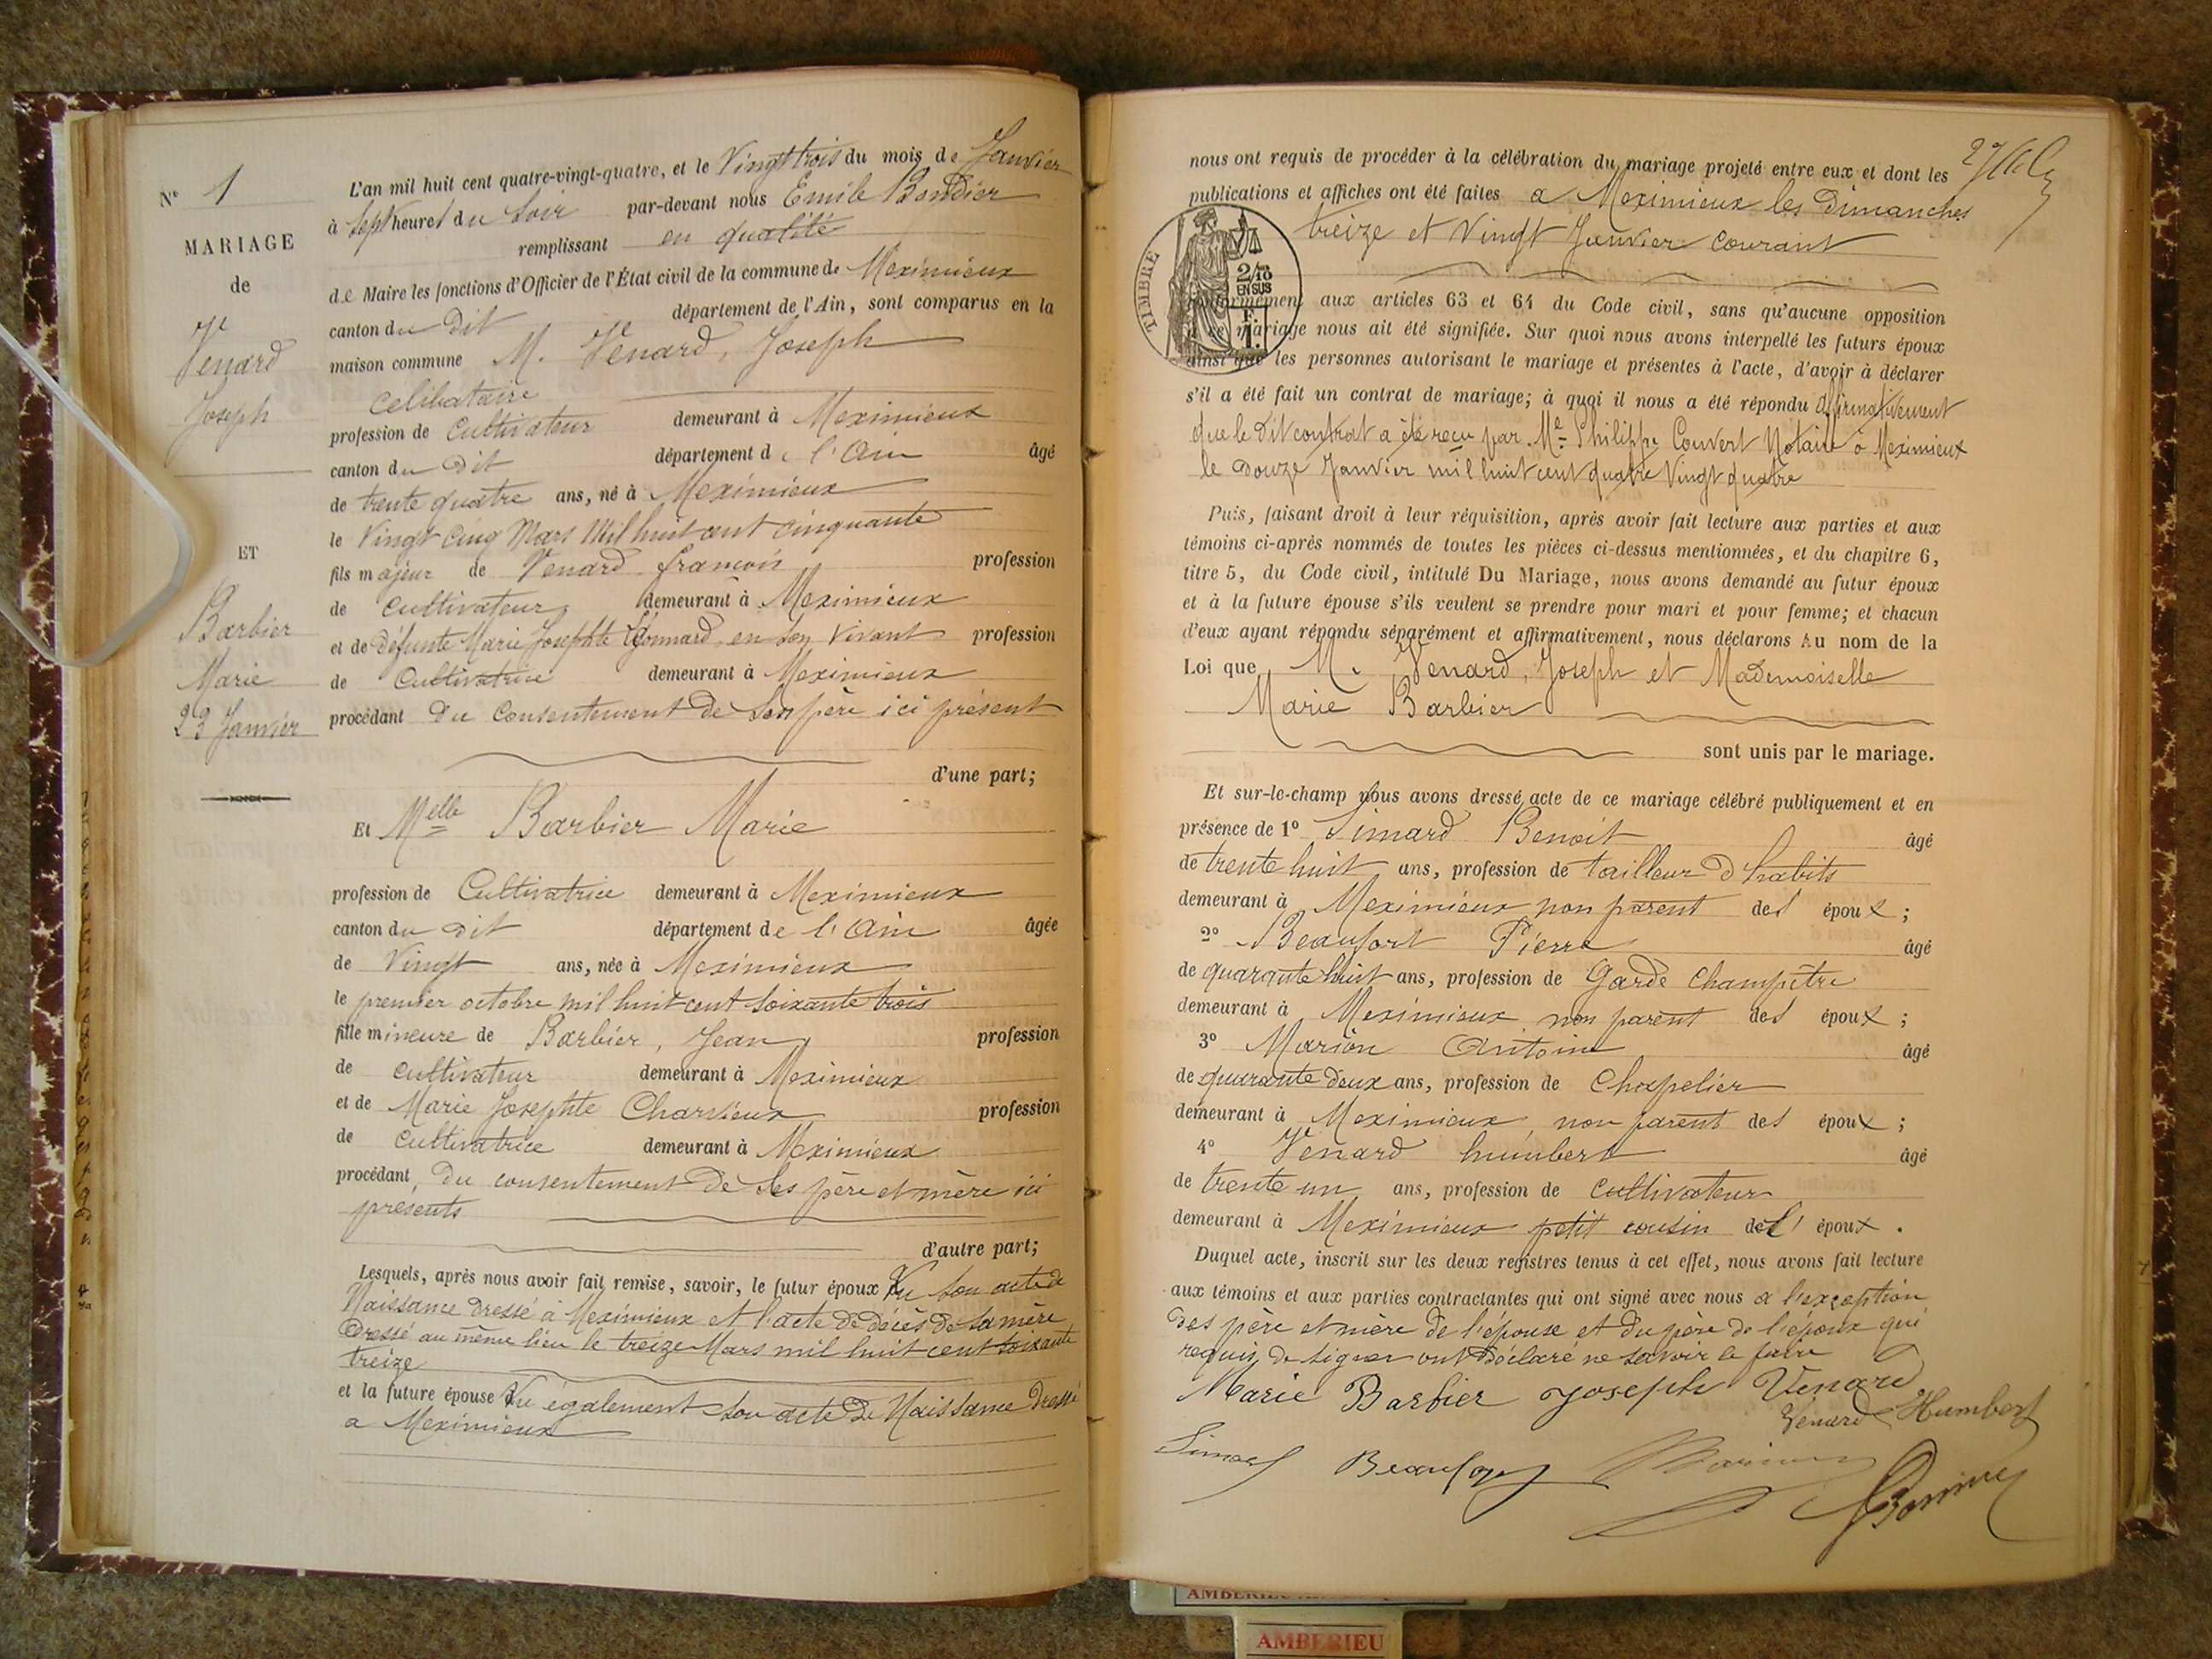 N° 1
MARIAGE
de
Venard
Joseph
ET
Barbier
Marie
23 Janvier
L'an mil huit cent quatre-vingt-quatre, et le Vingt trois du mois de Janvier
à Sept heures du Soir par-devant nous Emile
remplissant en qualité
de Maire les fonctions d'Officier de l'État civil de la commune de Meximieux
canton du dit département de l'Ain, sont comparus en la
maison commune M. Venard, Joseph
Celibataire
profession de Cultivateur demeurant à Meximieux
canton du dit département de l'Ain âgé
de trente quatre ans, né à Meximieux
le Vingt Cinq Mars Mil huit cent cinquante
fils majeur de Venard françois profession
de Cultivateur demeurant à Meximieux
et de défunte Marie Josephte en son vivant profession
de Cultivatrice demeurant à Meximieux
procédant du Consentement de son père ici présent
d'une part;
Et Melle Barbier Marie
profession de Cultivatrice demeurant à Meximieux
canton du dit département de l'Ain âgée
de Vingt ans, née à Meximieux
le premier octobre mil huit cent soixante trois
fille mineure de Barbier, Jean profession
de cultivateur demeurant à Meximieux
et de Marie Josephte Charvieux profession
de cultivatrice demeurant à Meximieux
procédant du consentement de ses père et mère ici
présents
d'autre part;
Lesquels, après nous avoir fait remise, savoir, le futur époux Vu son acte de
Naissance dressé à Meximieux et l'acte de décès de sa mère
Dressé au même lieu le treize Mars mil huit cent soixante
treize
et la future épouse Vu également son acte de Naissance dressé
a Meximieux
nous ont requis de procéder à la célébration du mariage projeté entre eux et dont les
publications et affiches ont été faites a Meximieux les Dimanches
treize et Vingt Janvier courant
TIMBRE
2/10 EN SUS
F. 1.
aux articles 63 et 64 du Code civil, sans qu'aucune opposition
mariage nous ait été signifiée. Sur quoi nous avons interpellé les futurs époux
ainsi que les personnes autorisant le mariage et présentes à l'acte, d'avoir à déclarer
s'il a été fait un contrat de mariage; à quoi il nous a été répondu Affirmativement
que le dit contrat a été reçu par Me Philippe Convert Notaire à Meximieux
le Douze Janvier mil huit cent quatre Vingt quatre
Puis, faisant droit à leur réquisition, après avoir fait lecture aux parties et aux
témoins ci-après nommés de toutes les pièces ci-dessus mentionnées, et du chapitre 6,
titre 5, du Code civil, intitulé Du Mariage, nous avons demandé au futur époux
et à la future épouse s'ils veulent se prendre pour mari et pour femme; et chacun
d'eux ayant répondu séparément et affirmativement, nous déclarons Au nom de la
Loi que M. Venard, Joseph et Mademoiselle
Marie Barbier
sont unis par le mariage.
Et sur-le-champ nous avons dressé acte de ce mariage célébré publiquement et en
présence de 1° Simard Benoit âgé
de trente huit ans, profession de tailleur d'habits
demeurant à Meximieux non parent des époux;
2° Beaufort Pierre âgé
de quarante huit ans, profession de Garde Champêtre
demeurant à Meximieux non parent des époux;
3° Marion Antoine âgé
de quarante deux ans, profession de Chapelier
demeurant à Meximieux, non parent des époux;
4° Venard humbert âgé
de trente un ans, profession de cultivateur
demeurant à Meximieux petit cousin de l'époux.
Duquel acte, inscrit sur les deux registres tenus à cet effet, nous avons fait lecture
aux témoins et aux parties contractantes qui ont signé avec nous a l'exception
des père et mère de l'épouse et du père de l'époux qui
requis de signer ont déclaré ne savoir le faire
Marie Barbier Joseph Venard
Venard Humbert
Simard Beaufort Marion
AMBERIEU
AMBERIEU